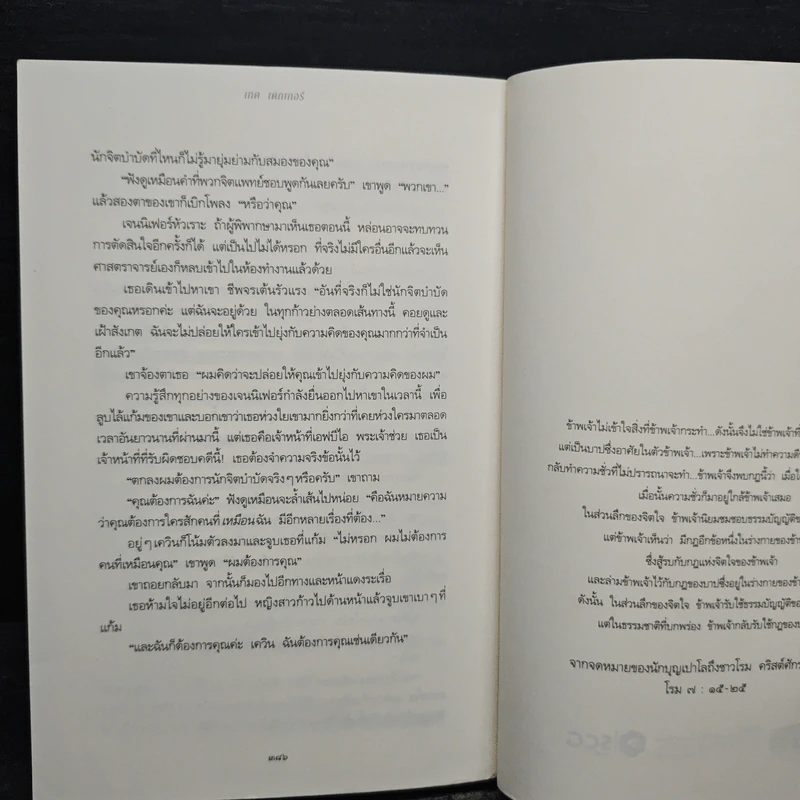 เทด เดกเกอร์
นักจิตบำบัดที่ไหนก็ไม่รู้มายุ่มย่ามกับสมองของคุณ”
“ฟังดูเหมือนคำที่พวกจิตแพทย์ชอบพูดกันเลยครับ” เขาพูด “พวกเขา...”
แล้วสองตาของเขาก็เบิกโพลง “หรือว่าคุณ”
เจนนิเฟอร์หัวเราะ ถ้าผู้พิพากษามาเห็นเธอตอนนี้ หล่อนอาจจะทบทวน
การตัดสินใจอีกครั้งก็ได้ แต่เป็นไปไม่ได้หรอก ที่จริงไม่มีใครอื่นอีกแล้วจะเห็น
ศาสตราจารย์เองก็หลบเข้าไปในห้องทำงานแล้วด้วย
เธอเดินเข้าไปหาเขา ชีพจรเต้นรัวแรง “อันที่จริงก็ไม่ใช่นักจิตบำบัด
ของคุณหรอกค่ะ แต่ฉันจะอยู่ด้วย ในทุกก้าวย่างตลอดเส้นทางนี้ คอยดูและ
เฝ้าสังเกต ฉันจะไม่ปล่อยให้ใครเข้าไปยุ่งกับความคิดของคุณมากกว่าที่จำเป็น
อีกแล้ว”
เขาจ้องตาเธอ “ผมคิดว่าจะปล่อยให้คุณเข้าไปยุ่งกับความคิดของผม”
ความรู้สึกทุกอย่างของเจนนิเฟอร์กำลังยื่นออกไปหาเขาในเวลานี้ เพื่อ
ลูบไล้แก้มของเขาและบอกเขาว่าเธอห่วงใยเขามากยิ่งกว่าที่เคยห่วงใครมาตลอด
เวลาอันยาวนานที่ผ่านมานี้ แต่เธอคือเจ้าหน้าที่เอฟบีไอ พระเจ้าช่วย เธอเป็น
เจ้าหน้าที่ที่รับผิดชอบคดีนี้! เธอต้องจำความจริงข้อนั้นไว้
“ตกลงผมต้องการนักจิตบำบัดจริงๆ หรือครับ” เขาถาม
“คุณต้องการฉันค่ะ” ฟังดูเหมือนจะล้ำเส้นไปหน่อย “คือฉันหมายความ
ว่าคุณต้องการใครสักคนที่เหมือนฉัน มีอีกหลายเรื่องที่ต้อง...”
อยู่ๆ เควินก็โน้มตัวลงมาและจูบเธอที่แก้ม “ไม่หรอก ผมไม่ต้องการ
คนที่เหมือนคุณ” เขาพูด “ผมต้องการคุณ”
เขาถอยกลับมา จากนั้นก็มองไปอีกทางและหน้าแดงระเรื่อ
เธอห้ามใจไม่อยู่อีกต่อไป หญิงสาวก้าวไปด้านหน้าแล้วจูบเขาเบาๆ ที่
แก้ม
“และฉันก็ต้องการคุณค่ะ เควิน ฉันต้องการคุณเช่นเดียวกัน”
๓๘๖
ข้าพเจ้าไม่เข้าใจสิ่งที่ข้าพเจ้ากระทำ...ดังนั้นจึงไม่ใช่ข้าพเจ้าที่
แต่เป็นบาปซึ่งอาศัยในตัวข้าพเจ้า...เพราะข้าพเจ้าไม่ทำความดี
กลับทำความชั่วที่ไม่ปรารถนาจะทำ...ข้าพเจ้าจึงพบกฎนี้ว่า เมื่อ
เมื่อนั้นความชั่วก็มาอยู่ใกล้ข้าพเจ้าเสมอ
ในส่วนลึกของจิตใจ ข้าพเจ้านิยมชมชอบธรรมบัญญัติ
แต่ข้าพเจ้าเห็นว่า มีกฎอีกข้อหนึ่งในร่างกายของข้า
ซึ่งสู้รบกับกฎแห่งจิตใจของข้าพเจ้า
และล่ามข้าพเจ้าไว้กับกฎของบาปซึ่งอยู่ในร่างกายของข้า
ดังนั้น ในส่วนลึกของจิตใจ ข้าพเจ้ารับใช้ธรรมบัญญัติ
แต่ในธรรมชาติที่บกพร่อง ข้าพเจ้ากลับรับใช้กฎของ
จากจดหมายของนักบุญเปาโลถึงชาวโรม คริสต์ศัก
โรม ๗ : ๑๕-๒๕